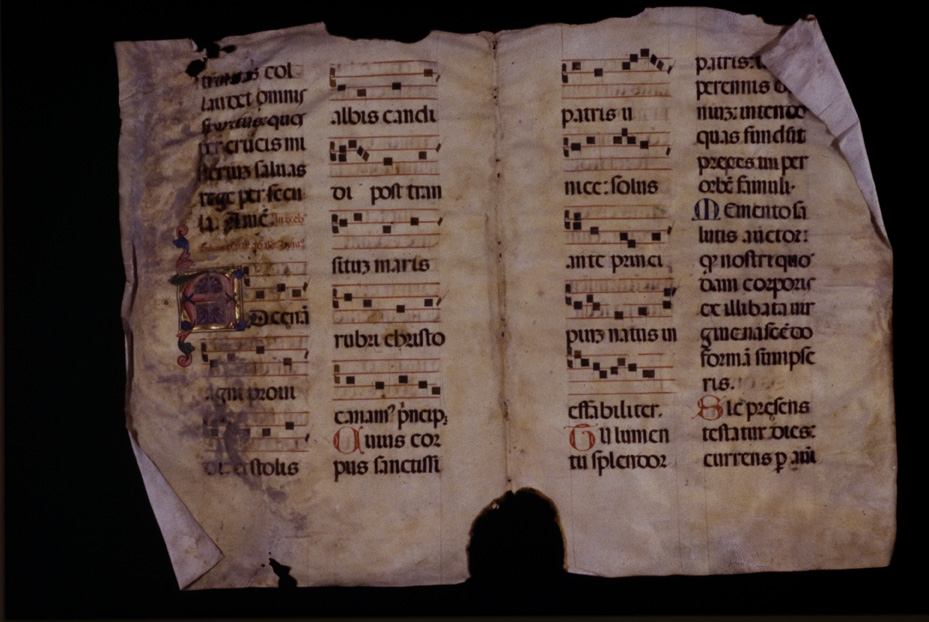 trinitas col
laudet omnis
spiritus: quos
per crucis mi
sterium saluas
rege per secu
la. Amē.
D cenā
agni proui
di et stolis
albis candi
di post tran
situm maris
rubri christo
canam9 pncipi
Cuius cor
pus sanctissi
patris u
nice: solus
ante princi
pium natus in
effabiliter.
Tu lumen
tu splendor
patris: t
perennis
nium: intende
quas fundūt
preces tui per
orbē famuli.
Memento sa
lutis auctor:
qp nostri quo
dam corporis
ex illibata uir
gine nascēdo
formā sumpse
ris.
Sic presens
testatur dies:
currens p anni